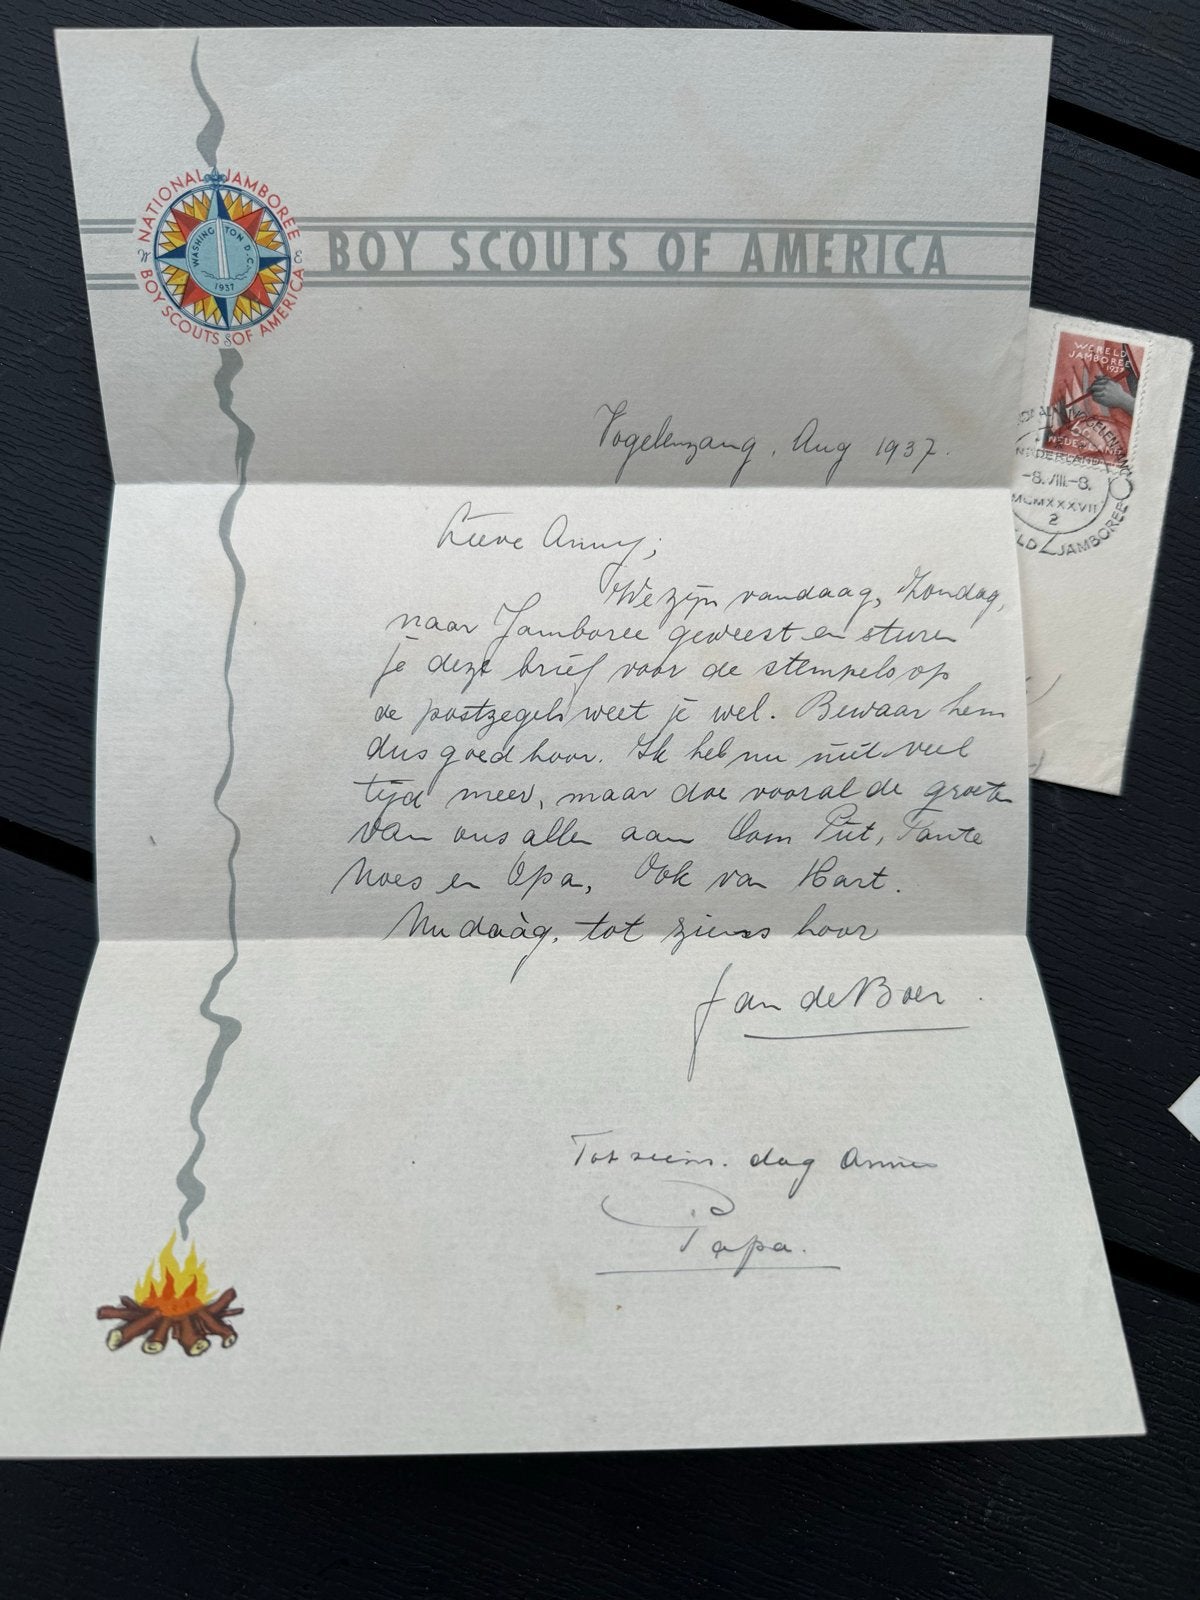 NATIONAL JAMBOREE
W E
WASHINGTON D.C.
1937
BOY SCOUTS OF AMERICA
S
BOY SCOUTS OF AMERICA
WERELD
JAMBOREE
1937
NEDERLAND
VOGELENZANG
NEDERLAND
-8.VIII.-8.
MCMXXXVII
2
JAMBOREE
Vogelenzang, Aug 1937.
Lieve Anny,
We zijn vandaag, Zondag,
naar Jamboree geweest en sturen
je deze brief voor de stempels op
de postzegels weet je wel. Bewaar hem
dus goed hoor. Ik heb nu niet veel
tijd meer, maar doe vooral de groeten
van ons allen aan Oom Piet, Tante
Noes en Opa, Ook van Hart.
Nu daàg, tot ziens hoor
Jan de Boer.
Tot ziens. dag Annie
Papa.